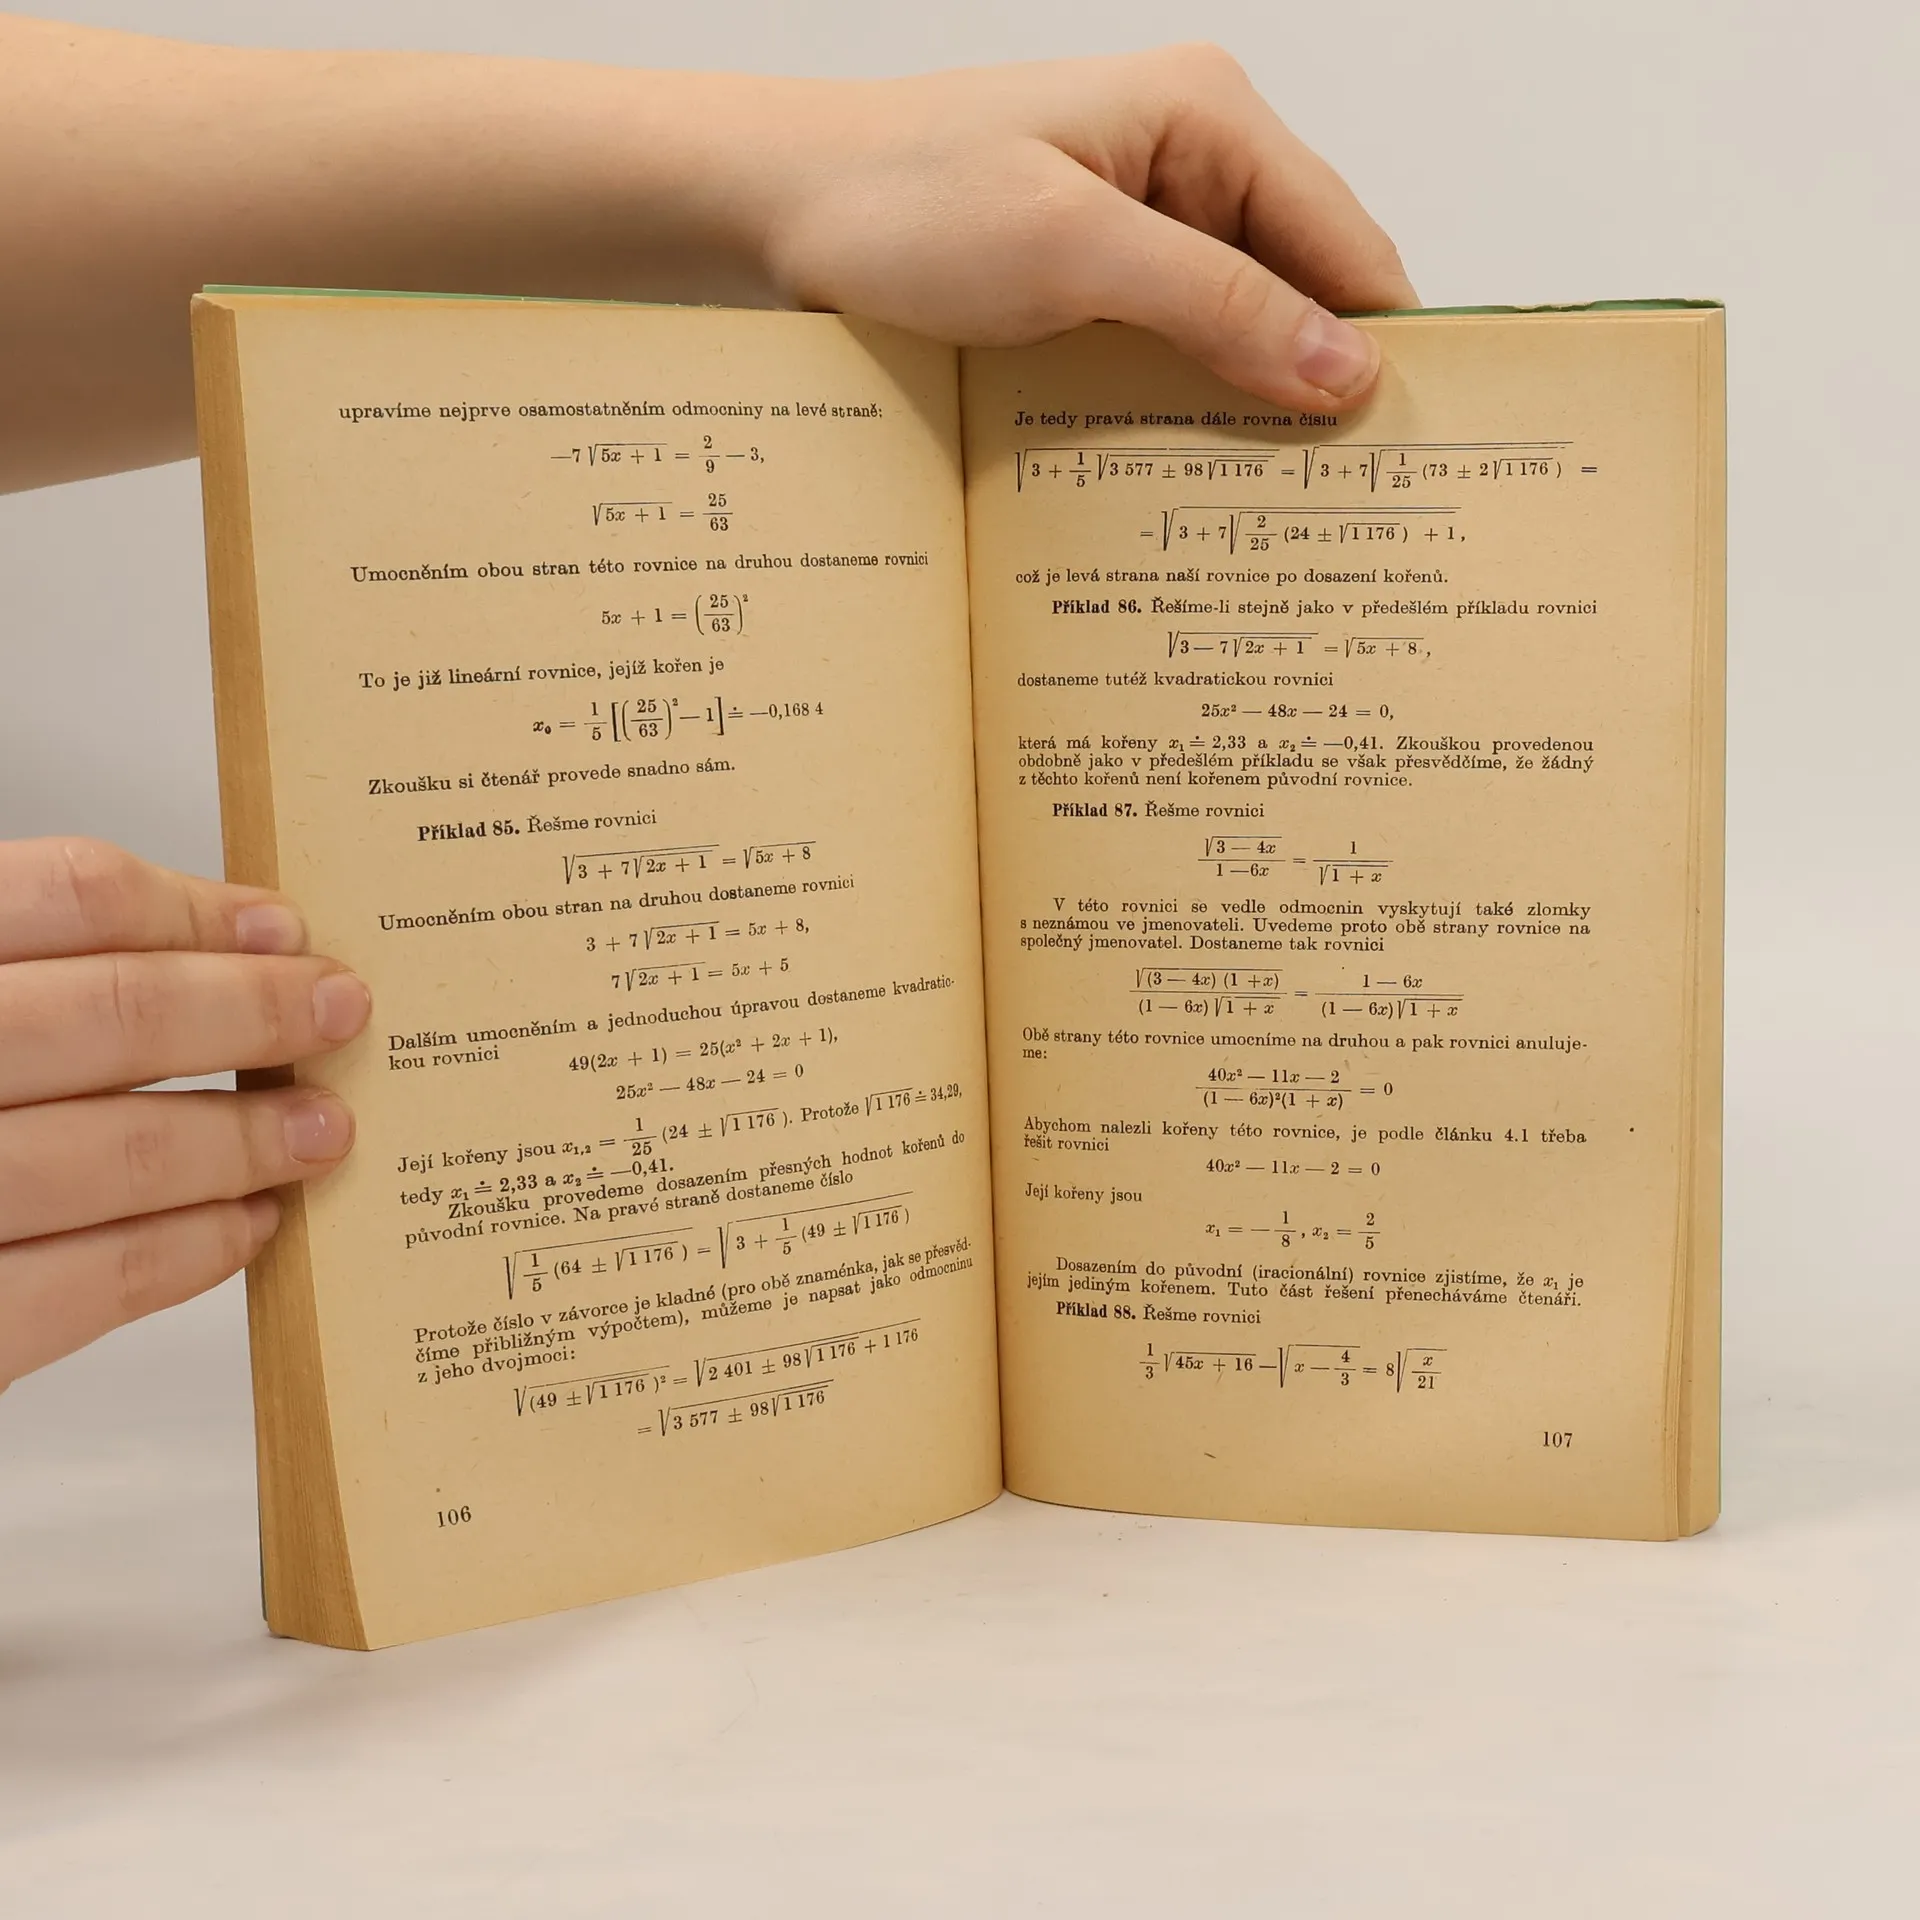 upravíme nejprve osamostatněním odmocniny na levé straně:
—7 √(5x + 1) = 2/9 — 3,
√(5x + 1) = 25/63
Umocněním obou stran této rovnice na druhou dostaneme rovnici
5x + 1 = (25/63)²
To je již lineární rovnice, jejíž kořen je
x₀ = 1/5 [(25/63)² — 1] ≐ —0,168 4
Zkoušku si čtenář provede snadno sám.
Příklad 85. Řešme rovnici
√(3 + 7√(2x + 1)) = √(5x + 8)
Umocněním obou stran na druhou dostaneme rovnici
3 + 7√(2x + 1) = 5x + 8,
7√(2x + 1) = 5x + 5
Dalším umocněním a jednoduchou úpravou dostaneme kvadratic-
kou rovnici
49(2x + 1) = 25(x² + 2x + 1),
25x² — 48x — 24 = 0
Její kořeny jsou x₁,₂ = 1/25 (24 ± √(1 176)). Protože √(1 176) ≐ 34,29,
tedy x₁ ≐ 2,33 a x₂ ≐ —0,41.
Zkoušku provedeme dosazením přesných hodnot kořenů do
původní rovnice. Na pravé straně dostaneme číslo
√(1/5 (64 ± √(1 176))) = √(3 + 1/5 (49 ± √(1 176)))
Protože číslo v závorce je kladné (pro obě znaménka, jak se přesvěd-
číme přibližným výpočtem), můžeme je napsat jako odmocninu
z jeho dvojmoci:
√((49 ± √(1 176))²) = √(2 401 ± 98√(1 176) + 1 176)
= √(3 577 ± 98√(1 176))
106
Je tedy pravá strana dále rovna číslu
√(3 + 1/5 √(3 577 ± 98√(1 176))) = √(3 + 7√(1/25 (73 ± 2√(1 176)))) =
= √(3 + 7√(2/25 (24 ± √(1 176)) + 1)),
což je levá strana naší rovnice po dosazení kořenů.
Příklad 86. Řešíme-li stejně jako v předešlém příkladu rovnici
√(3 — 7√(2x + 1)) = √(5x + 8),
dostaneme tutéž kvadratickou rovnici
25x² — 48x — 24 = 0,
která má kořeny x₁ ≐ 2,33 a x₂ ≐ —0,41. Zkouškou provedenou
obdobně jako v předešlém příkladu se však přesvědčíme, že žádný
z těchto kořenů není kořenem původní rovnice.
Příklad 87. Řešme rovnici
√(3 — 4x)/(1 —6x) = 1/√(1 + x)
V této rovnici se vedle odmocnin vyskytují také zlomky
s neznámou ve jmenovateli. Uvedeme proto obě strany rovnice na
společný jmenovatel. Dostaneme tak rovnici
√((3 — 4x) (1 +x))/((1 — 6x) √(1 + x)) = (1 — 6x)/((1 — 6x)√(1 + x))
Obě strany této rovnice umocníme na druhou a pak rovnici anuluje-
me:
(40x² — 11x — 2)/((1 — 6x)²(1 + x)) = 0
Abychom nalezli kořeny této rovnice, je podle článku 4.1 třeba
řešit rovnici
40x² — 11x — 2 = 0
Její kořeny jsou
x₁ = — 1/8 , x₂ = 2/5
Dosazením do původní (iracionální) rovnice zjistíme, že x₁ je
jejím jediným kořenem. Tuto část řešení přenecháváme čtenáři.
Příklad 88. Řešme rovnici
1/3 √(45x + 16) — √(x — 4/3) = 8√(x/21)
107